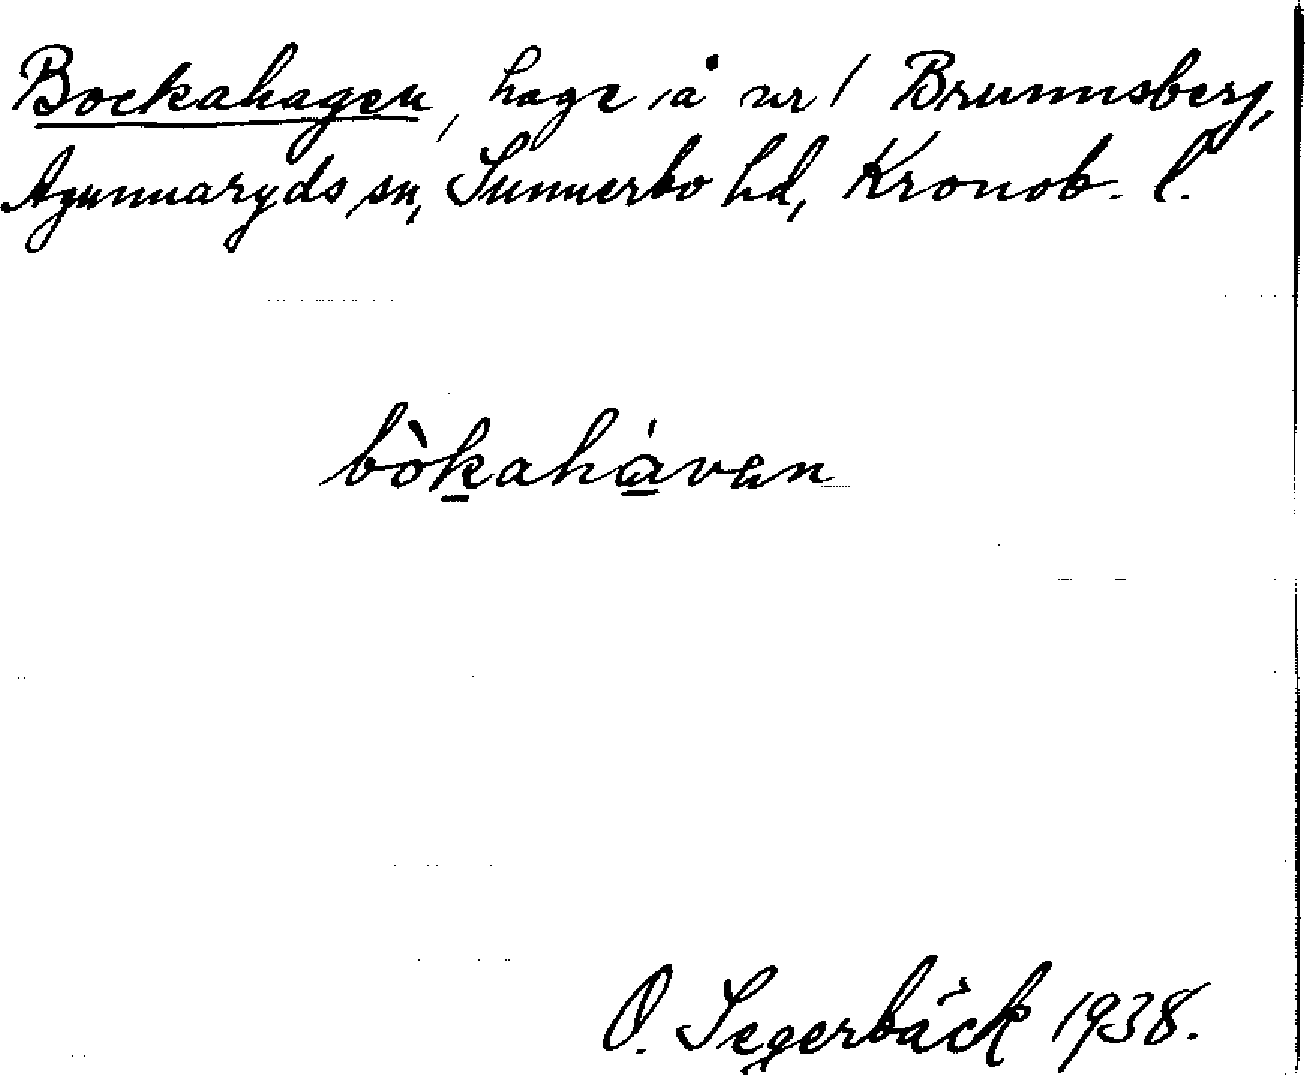 Bockahagen, hage å nr 1 Brunnsberg,
Agunnaryds sn, Sunnerbo hd, Kronob. l.
bòkahávan
O. Segerbäck 1938.